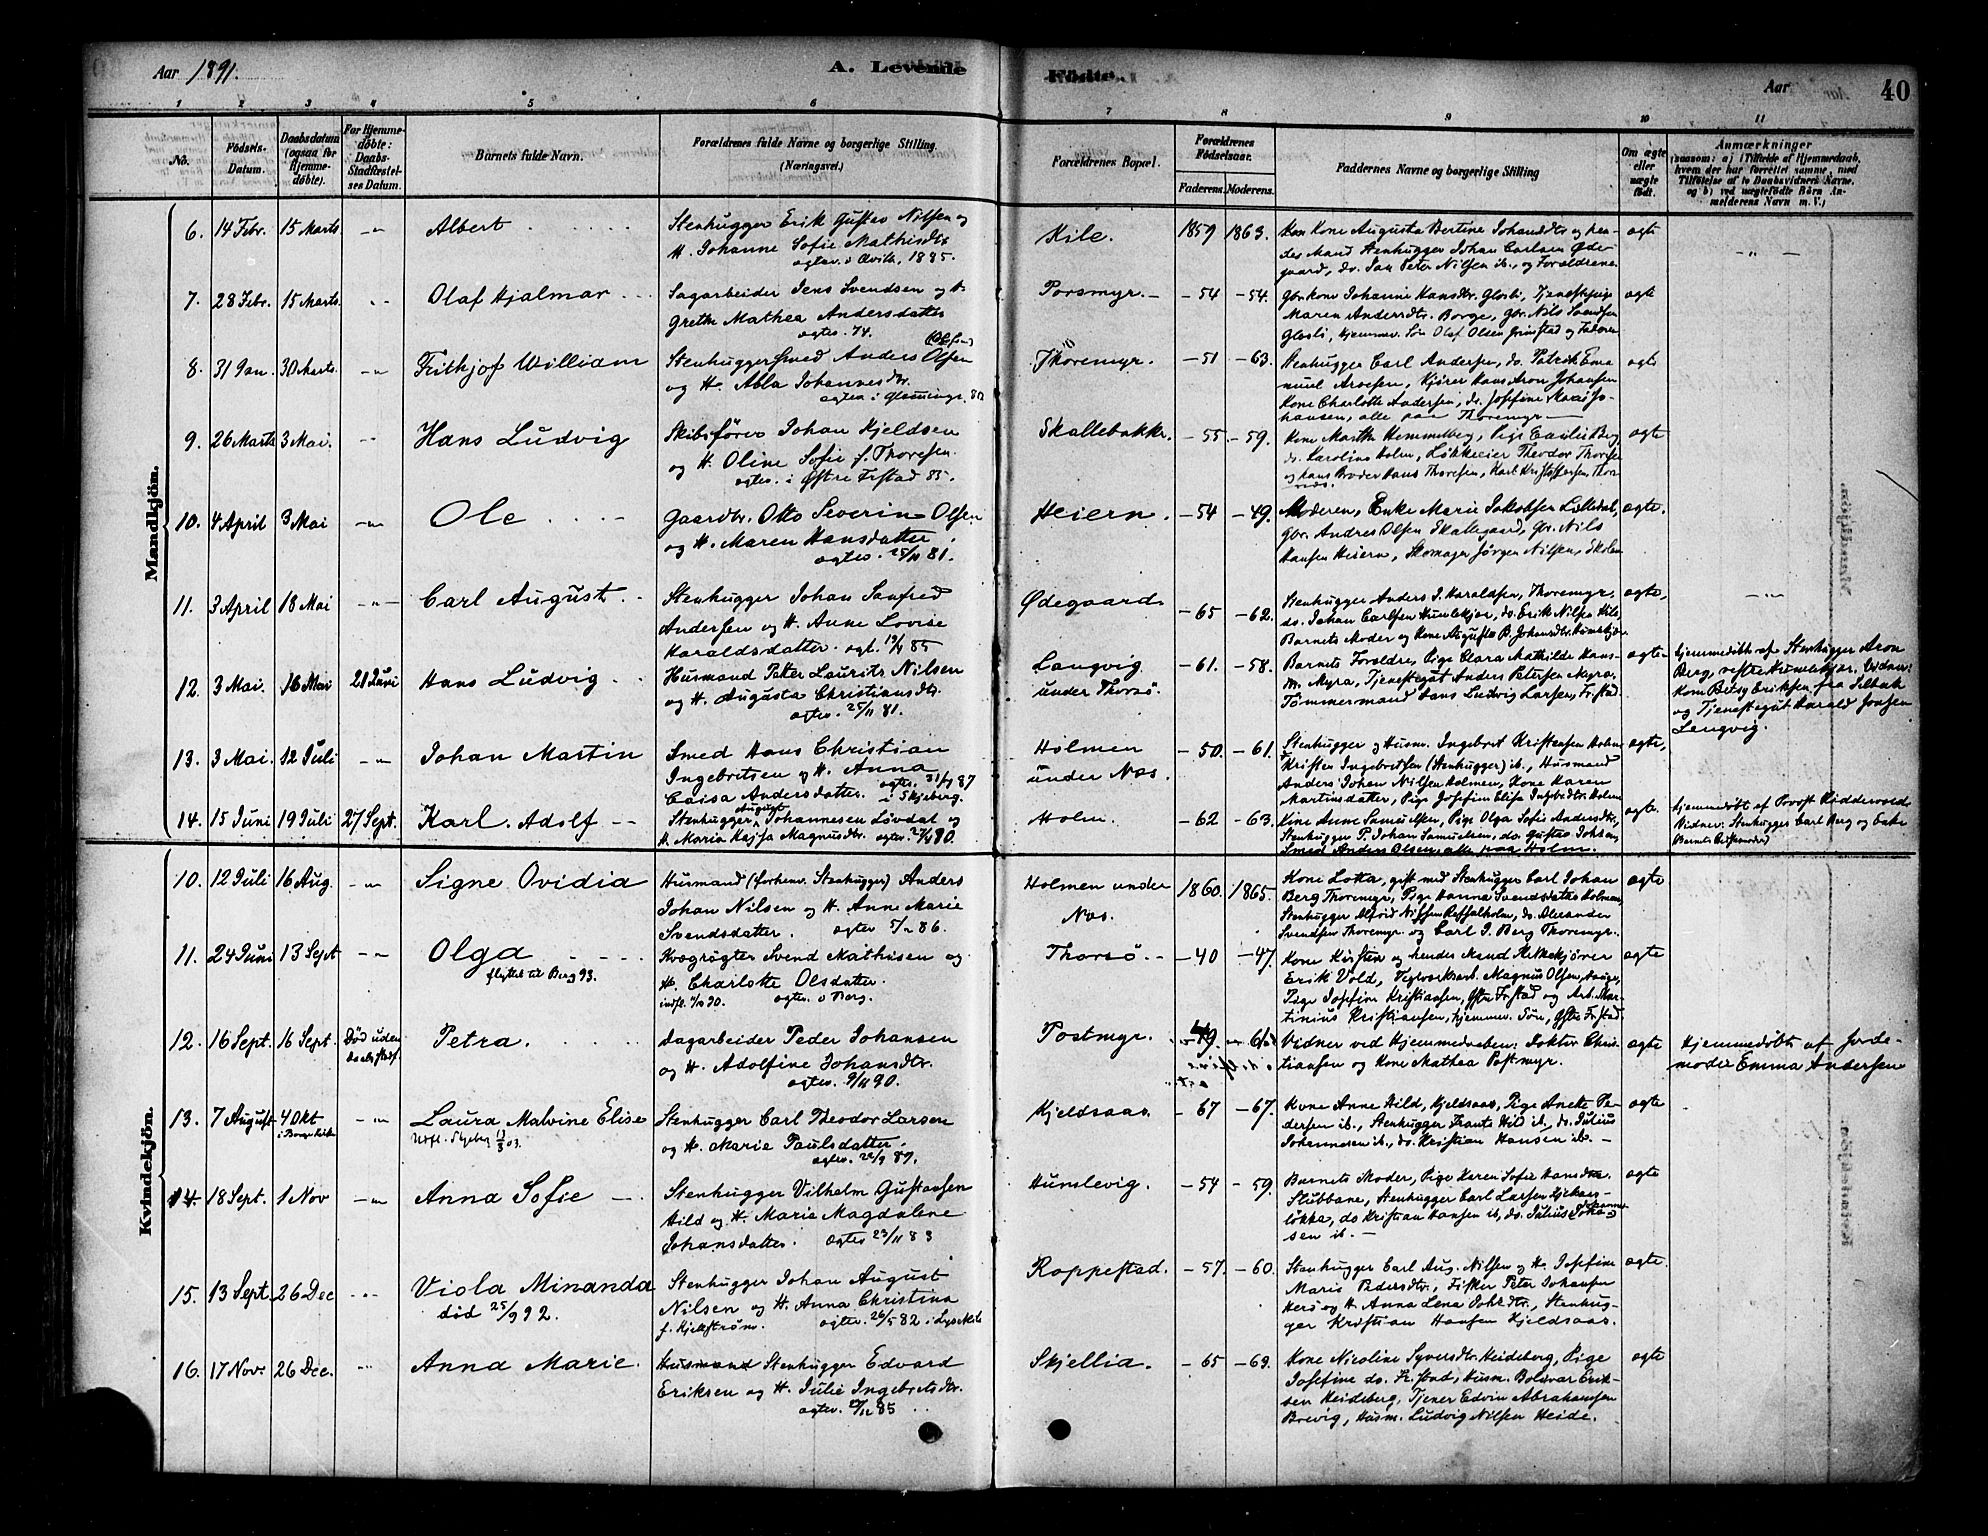 Aar 1891.
A. Levende
Fødte.
Aar
40
1 2 3 4 5 6 7 8 9 10 11
No.
Fødsels-
Datum.
Daabsdatum
(ogsaa for
Hjemme-
døbte).
For Hjemme-
døbte:
Daabs-
Stadfæstel-
ses Datum.
Barnets fulde Navn.
Forældrenes fulde Navne og borgerlige Stilling.
(Næringsvei.)
Forældrenes Bopæl.
Forældrenes
Fødselsaar.
Faderens. Moderens.
Faddernes Navne og borgerlige Stilling
Om ægte
eller
uægte
født.
Anmærkninger
(saasom: a) i Tilfælde af Hjemmedaab,
hvem der har forrettet samme, med
Tilføielse af to Daabsvidners Navne,
og b) ved uægtefødte Børn An-
melderens Navn m. V.)
Mandkjön.
6. 14 Febr. 15 Marts. -"- Albert
Stenhugger Erik Gustav Nilsen og
H. Johanne Sofie Mathisdtr
ægtev. i Qvile, 1885.
Kile. 1859 1863.
Kone Augusta Bertine Johansdtr og hen-
des Mand Stenhugger Johan Carlsen Øde-
gaard, do. Jan Peter Nilsen ib., og Forældrene
ægte
7. 28 Febr. 15 Marts. Olaf Hjalmar
Sagarbeider Jens Svendsen og H.
Grethe Mathea Andersdatter
ægtev. 74.
Porsmyr. -54 -54.
Gbr. kone Johanne Hansdtr. Glosli, Tjenestepige
Maren Andersdtr. Borge, Gbr. Nils Svendsen
Glosli, hjemmev. Søn Olaf Olsen Grimstad og Faderen
ægte
8. 31 Jan. 30 Marts. -"- Frithjof William
Stenhuggersmed Anders Olsen
og H. Abla Johannesdtr.
ægtev. i Glemminge.
Thoremyr. -51 -63.
Stenhugger Carl Andersen, do. Patrik Ema-
nuel Aroesen, Kjører Hans Aron Johansen
Kone Charlotte Andersen, do. Josefine Marie Jo-
hansen, alle paa Thoremyr
ægte
9. 26 Marts 3 Mai. Hans Ludvig
Skibsfører Johan Kjeldsen
og H. Oline Sofie f. Thoresen.
ægtev. i Østre Frstad 85.
Skallebakke. -55. -59.
Kone Marthe Hemmelberg, Pige Emilie Berg
do. Karoline Holm, Løkkeeier Theodor Thoresen
og hans Broder Hans Thoresen, Karl Kristoffersen, Thor-
ægte
10. 4 April 3 Mai -"- Ole
Gaardbr. Otto Severin Olsen
og H. Maren Hansdatter.
ægtev. 25/11 81.
Heiern. -54 -49.
Moderen, Enke Marie Jakobsen Lilledal,
Gbr. Andres Olsen Skallegaard, Gbr. Nils
Hansen Heiern, Skomager Jørgen Nilsen, Skolen
ægte.
11. 3 April 18 Mai -"- Carl August
Stenhugger Johan Sanfred
Andersen og H. Anne Lovise
Haraldsdatter. ægt. 19/4 85
Ødegaard. -65 -62.
Stenhugger Anders J. Haraldsen, Thoremyr,
do. Johan Carlsen Humlekjær, do. Erik Nilsen Kile,
Barnets Moder og Kone Augusta B. Johansdtr. Humlekjær
ægte,
-"-
12. 3 Mai. 16 Mai 21 Juni Hans Ludvig
Husmand Peter Laurits Nilsen
og H. Augusta Christiansdtr.
ægtev. 25/11 81.
Langvig
under Thorsø.
-61. -58.
Barnets Forældre, Pige Clara Mathilde Hans-
m. Myra, Tjenestegut Anders Petersen Myra,
Tømmermand Hans Ludvig Larsen, Frstad
ægte
Hjemmedøbt af Stenhugger Aron
Berg, vestre Humlekjær. Vidner:
Kone Betsy Eriksen fra Selbak
og Tjenestegut Harald Jonsen
Langvig.
13. 3 Mai. 12 Juli -"- Johan Martin
Smed Hans Christian
Ingebritsen og H. Anna
Caisa Andersdatter. ægtev. 31/7 87
i Skjeberg.
Holmen
under Næs.
-50. -61.
Stenhugger og Husm. Ingebret Kristensen Holmen
Kristen Ingebretsen (Stenhugger) ib., Husmand
Anders Johan Nilsen Holmen, Kone Karen
Martinsdatter, Pige Josefine Elise Ingebrdtr. Holmen
ægte,
14. 15 Juni 19 Juli 27 Sept. Karl Adolf
Stenhugger August Johannesen Løvdal og
H. Maria Kajsa Magnusdtr. ægtev. 80.
Holm. -62 -63.
Kine Anne Samuelsen, Pige Olga Sofie Andersdtr,
Stenhugger P. Johan Samuelsen, do. Gustav Johsen,
Smed Anders Olsen, alle paa Holm.
ægte.
Hjemmedøbt af Provst Riddervold.
Vidner: Stenhugger Carl Berg og Enke
Kvindekjön.
10. 12 Juli 16 Aug. -"- Signe Ovidia
Husmand (forhenv. Stenhugger) Anders
Johan Nilsen og H. Anne Marie
Svendsdatter. ægtev 86.
Holmen under
Næs.
1860. 1865.
Kone Lotta, gift med Stenhugger Carl Johan
Berg Thoremyr, Pige Hanna Svendsdatter Holmen,
Stenhugger Alfrid Nilsen Reffalholm, do. Alexander
Svendsen Thoremyr. og Carl J. Berg Thoremyr.
ægte
11. 24 Juni 13 Sept -"- Olga
flyttet til Berg 93.
Kvægrøgter Svend Mathisen og
H. Charlotte Olsdatter.
indfl. 90. ægtev. i Berg.
Thorsø. -40 -47.
Kone Kirsten og hendes Mand Melkekjører
Erik Vold, Teglværksarb. Magnus Olsen, Hauge,
Pige Josefine Kristiansen, Østre Frstad og Arb. Mar-
tinius Kristiansen, hjemmev. Søn, Østre Frstad
ægte
12. 16 Sept. 16 Sept. Død uden
Petra.
Dagarbeider Peder Johansen
og H. Adolfine Johansdtr.
ægtev. 9/11 90.
Postmyr.
Vidner ved Hjemmedaaben: Doktor Chris-
tiansen og Kone Mathea Postmyr.
ægte
Hjemmedøbt af Jorde-
moder Emma Andersen
13. 7 August 4 Okt
i Borge Kirke
-"- Laura Malvine Elise
Stenhugger Carl Theodor Larsen
og H. Marie Paulsdatter.
ægtev. 22/9 87.
Kjeldsaas. -67 -67.
Kone Anne Hild, Kjeldsaas, Pige Anette Pe-
dersen ib., Stenhugger Frants Hild ib., do. Julius
Johannesen ib., do. Kristian Hansen ib. -
ægte
14. 18 Sept. 1 Nov -"- Anna Sofie
Stenhugger Vilhelm Gustavsen
Hild og H. Marie Magdalene
Johansdatter. ægtev 23/11 83
Hunslevig. -54 -59.
Barnets Moder, Pige Karen Sofie Hansdtr.
Slubbane, Stenhugger Carl Larsen Kjekaas-
løkka, do Kristian Hansen ib, do. Julius Johannes-
sen ib. -
ægte
15. 13 Sept. 26 Dec Viola Minanda
død 25/9 92.
Stenhugger Johan August
Nilsen og H. Anna Christina
f. Kjellstrøm. ægtev. 26/5 82 i Lysekil
Roppestad. -57. -60.
Stenhugger Carl Aug. Nilsen og H. Josefine
Marie Pedersdtr., Fisker Peter Johansen
Herø og H. Anna Lena Johsdtr., Stenhug-
ger Kristian Hansen Kjeldsaas.
ægte.
16. 17 Nov. 26 Dec. Anna Marie.
Husmand Stenhugger Edvard
Eriksen og H. Julie Ingebretsdtr.
ægtev. 85
Skjellia. -65 -69.
Kone Nicoline Syversdtr. Heideberg, Pige
Josefine do. Frstad, Husm. Bolevar Erik-
sen Heideberg, Tjener Edvin Abrahamsen
Brevig, Husm. Ludvig Nilsen Heide.
ægte